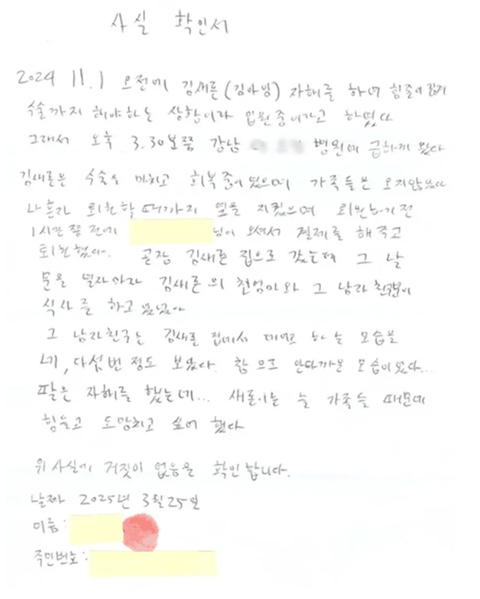 사실 확인서
2024 11.1 오전에 김새론(김아임) 자해를 하며 힘줄이 끊겨
수술까지 해야하는 상황이라 입원중이라고 하였다
그래서 오후 3.30분쯤 강남 병원에 급하게 갔다
김새론은 수술을 마치고 회복중이었으며 가족들은 오지않았다
나 혼자 퇴원할때까지 옆을 지켰으며 퇴원하기전
1시간쯤 전에 님이 오셔서 결제를 해주고
퇴원했다. 곧장 김새론 집으로 갔는데 그 날
문을 열자마자 김새론의 친동생이와 그 남자친구분이
식사를 하고 있었다
그 남자친구는 김새론 집에서 데이트 하는 모습을
네, 다섯번 정도 보았다. 참으로 안타까운 모습이었다...
팔은 자해를 했는데... 새론이는 늘 가족들 때문에
힘들고 도망치고 싶어 했다
위 사실에 거짓이 없음을 확인합니다.
날짜 2025년 3월25일
이름:
주민번호: